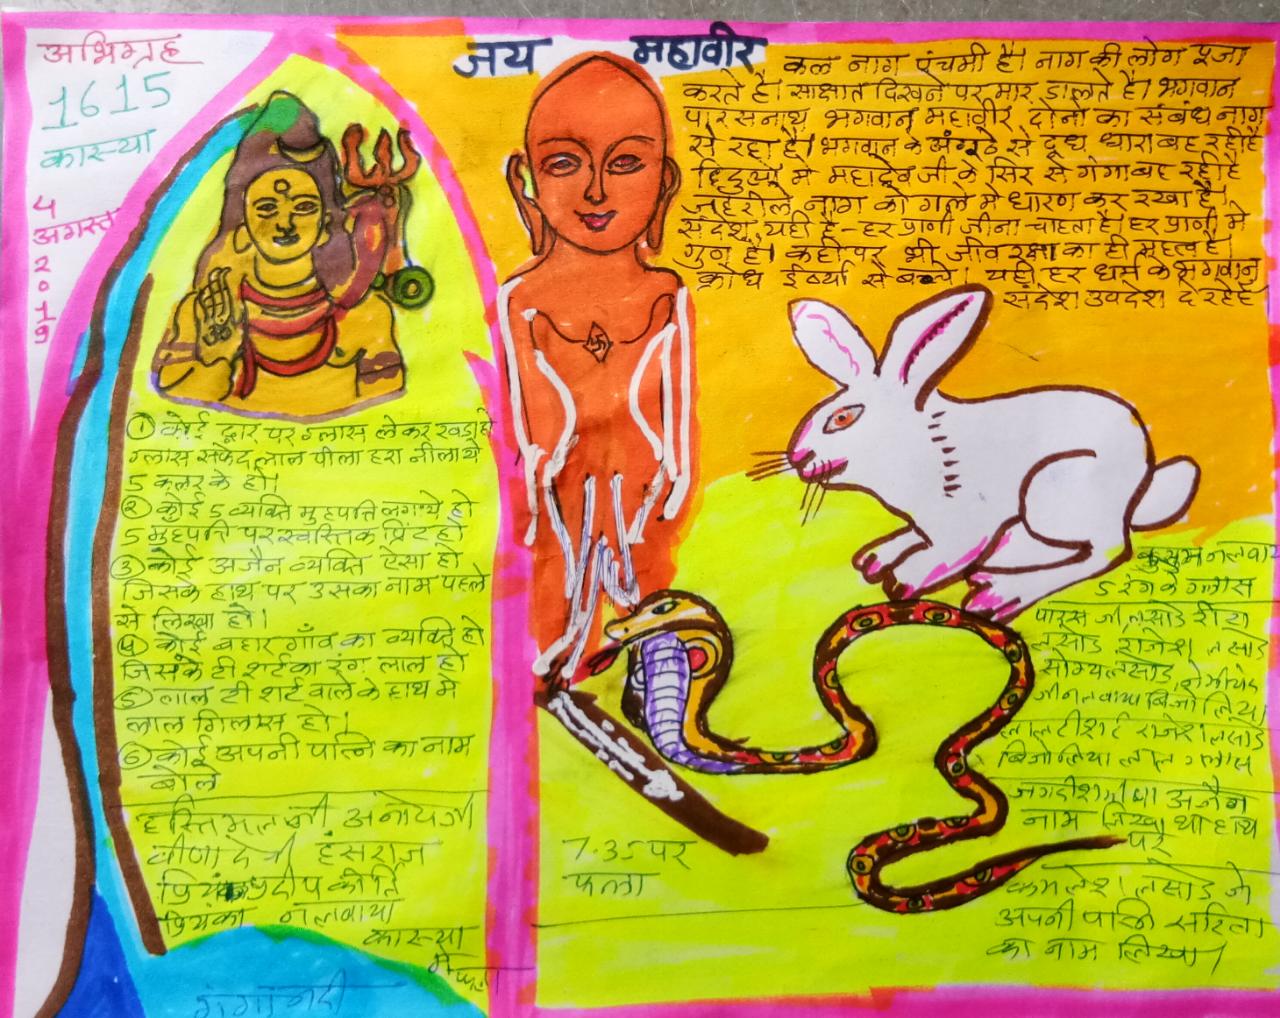 अभिग्रह
1615
कास्या
4
अगस्त
2019
जय महावीर
कल नाग पंचमी है। नाग की लोग पूजा
करते है। साक्षात दिखने पर मार डालते है। भगवान
पारसनाथ भगवान महावीर दोनो का संबंध नाग
से रहा है। भगवान के अंगूठे से दूध धारा बह रही है
हिंदुओ मे महादेव जी के सिर से गंगा बह रही है
जहरीले नाग को गले मे धारण कर रखा है।
संदेश यही है - हर प्राणी जीना चाहता है। हर प्राणी मे
गुण है। कही पर भी जीव रक्षा का ही महत्व है
क्रोध ईर्ष्या से बचे। यही हर धर्म के भगवान
संदेश उपदेश दे रहे है
① कोई द्वार पर ग्लास लेकर खडा हो
ग्लास सफेद लाल पीला हरा नीला ये
5 कलर के हो।
② कोई 5 व्यक्ति मुहपति लगाये हो
5 मुहपती पर स्वस्तिक प्रिंट हो
③ कोई अजैन व्यक्ति ऐसा हो
जिसके हाथ पर उसका नाम पहले
से लिखा हो।
④ कोई बहार गाँव का व्यक्ति हो
जिसके टी शर्ट का रंग लाल हो
⑤ लाल टी शर्ट वाले के हाथ मे
लाल गिलास हो।
⑥ कोई अपनी पत्नि का नाम
बोले
हस्तिमल जी
वीणा देवी हंसराज
प्रदीप कीर्ति
प्रियंका नलवाया
कास्या
मे फला
गंगा नदी
7.35 पर
फला
कुसुम नलवाया
5 रंग के ग्लास
पारस जी लसोड रीटा
लसोड राजेश लसोड
सौम्य लसोड
लाल टी शर्ट राजेश लसोड
बिजोलिया लाल ग्लास
अजैन
नाम लिखा था हाथ
पर
कमलेश लसोड ने
अपनी पत्नि सरिता
का नाम लिखा।